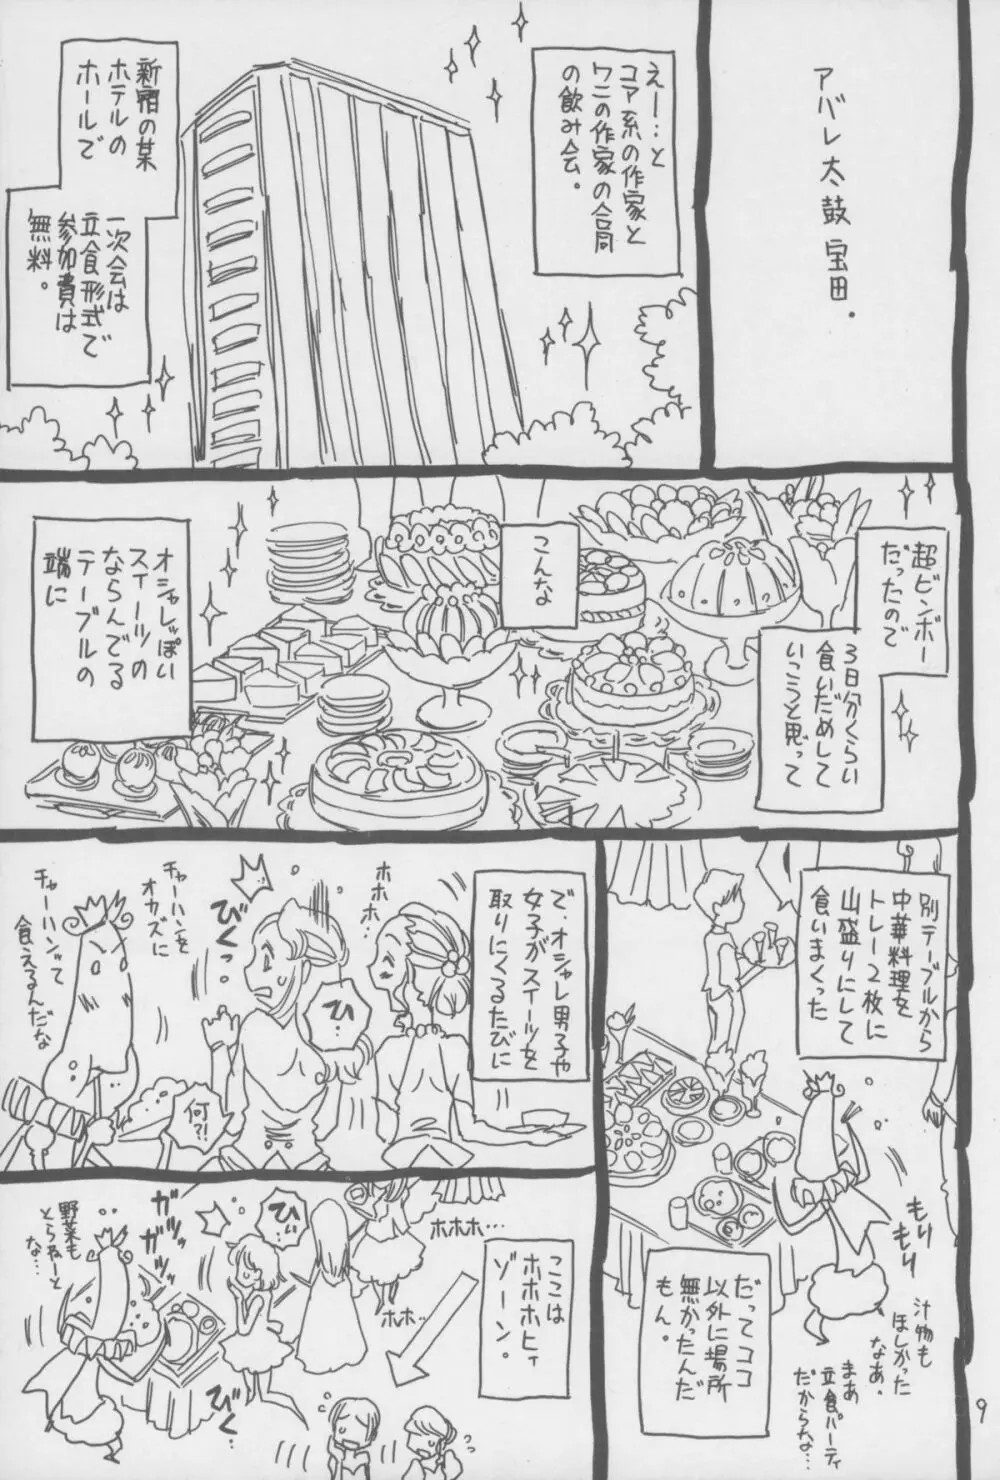 アバレ太鼓宝田．
えー…と
コア系の作家と
ワニの作家の合同
の飲み会。
新宿の某
ホテルの
ホールで
一次会は
立食形式で
参加費は
無料。
超ビンボー
だったので
3日分くらい
食いだめして
いこうと思って
こんな
オシャレっぽい
スイーツの
ならんでる
テーブルの
端に
別テーブルから
中華料理を
トレー2枚に
山盛りにして
食いまくった
もりもり
汁物も
ほしかった
なあ．
まあ
立食パーティ
だからな…
だってココ
以外に場所
無かったんだ
もん。
で．オシャレ男子や
女子がスイーツを
取りにくるたびに
ホホ
ホ…
ひ…
びくっ
何?!
チャーハンを
オカズに
チャーハンって
食えるんだな
ここは
ホホホヒィ
ゾーン。
ホホホ…
ホホ…
ひぃ
びく
ガツッ
ガツッ
野菜も
とらねーと
な…
9